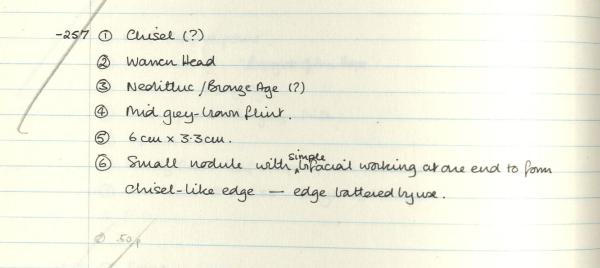 -257 ① Chisel (?)
② Warren Head
③ Neolithic / Bronze Age (?)
④ Mid grey-brown flint.
⑤ 6 cm x 3.3 cm.
⑥ Small nodule with simple bifacial working at one end to form
chisel-like edge — edge battered by use.
50p